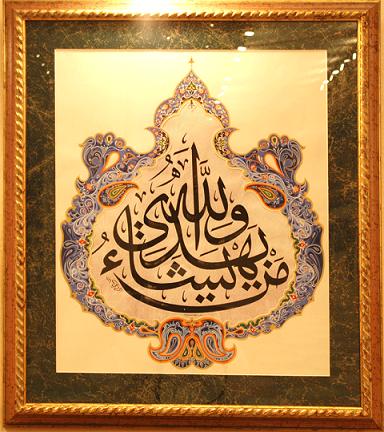 والله يهدي من يشاء